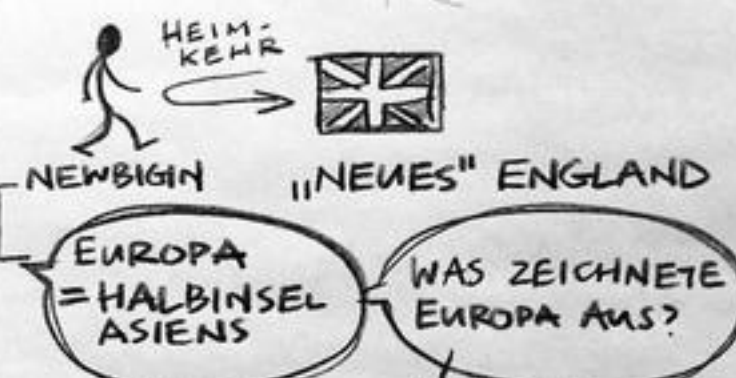 HEIM-
KEHR
NEWBIGIN
„NEUES" ENGLAND
EUROPA
= HALBINSEL
ASIENS
WAS ZEICHNETE
EUROPA AUS?